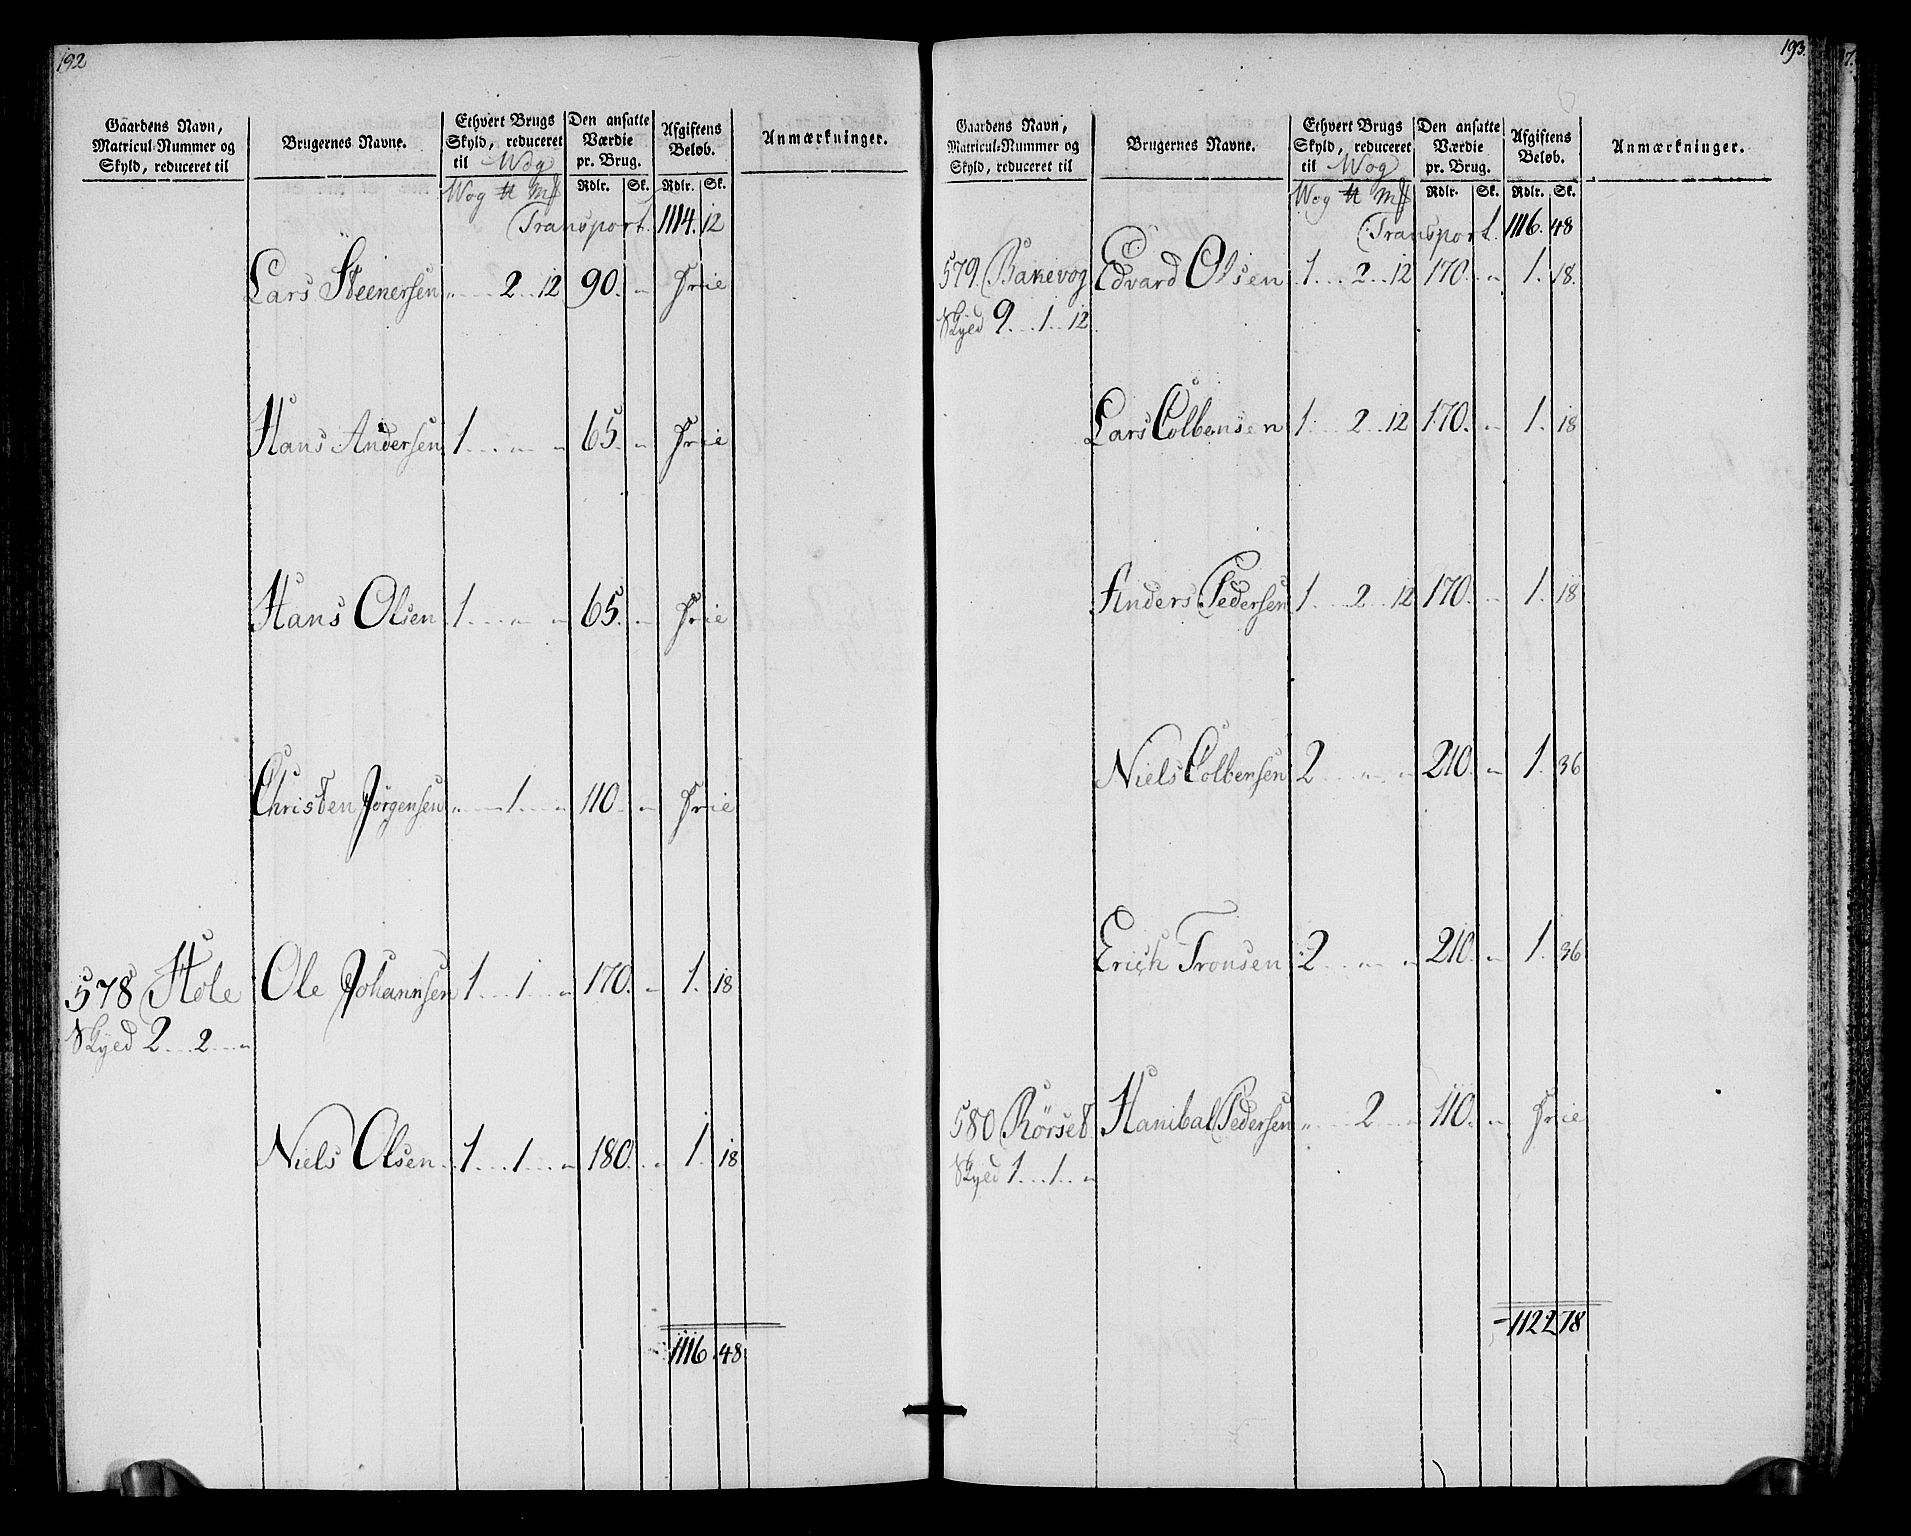 192
Gaardens Navn, Matricul-Nummer og Skyld, reduceret til
Brugernes Navne.
Ethvert Brugs Skyld, reduceret til Wog
Den ansatte Værdie pr. Brug.
Afgiftens Beløb.
Anmærkninger.
Wog ℔ Mk Rdlr. Sk. Rdlr. Sk.
Transport 1114. 12
Lars Steenersen „ 2 12 90. „ Frie
Hans Andersen 1 „ „ 65. „ Frie
Hans Olsen 1 „ „ 65. „ Frie
Christen Jørgensen „ 1 „ 110 „ Frie
578 Hole Ole Johannsen 1 1 „ 170. „ 1. 18
Skyed 2 2 „
Niels Olsen 1 1 „ 180. „ 1. 18
1116 48
193.
Gaardens Navn, Matricul-Nummer og Skyld, reduceret til
Brugernes Navne.
Ethvert Brugs Skyld, reduceret til Wog
Den ansatte Værdie pr. Brug.
Afgiftens Beløb.
Anmærkninger.
Wog ℔ Mk Rdlr. Sk. Rdlr. Sk.
Transport 1116. 48
579 Bakevog Edvard Olsen 1 2 12 170 „ 1. 18.
Skyed 9 1 12
Lars Colbensen 1 2 12 170. „ 1. 18
Anders Pedersen 1 2 12 170. „ 1. 18
Niels Colbensen 2 „ „ 210. „ 1. 36
Erich Tronsen 2 „ „ 210. „ 1. 36
580 Rörset Hanibal Pedersen „ 2 „ 110. „ Frie
Skyed 1 1 „
1122 78